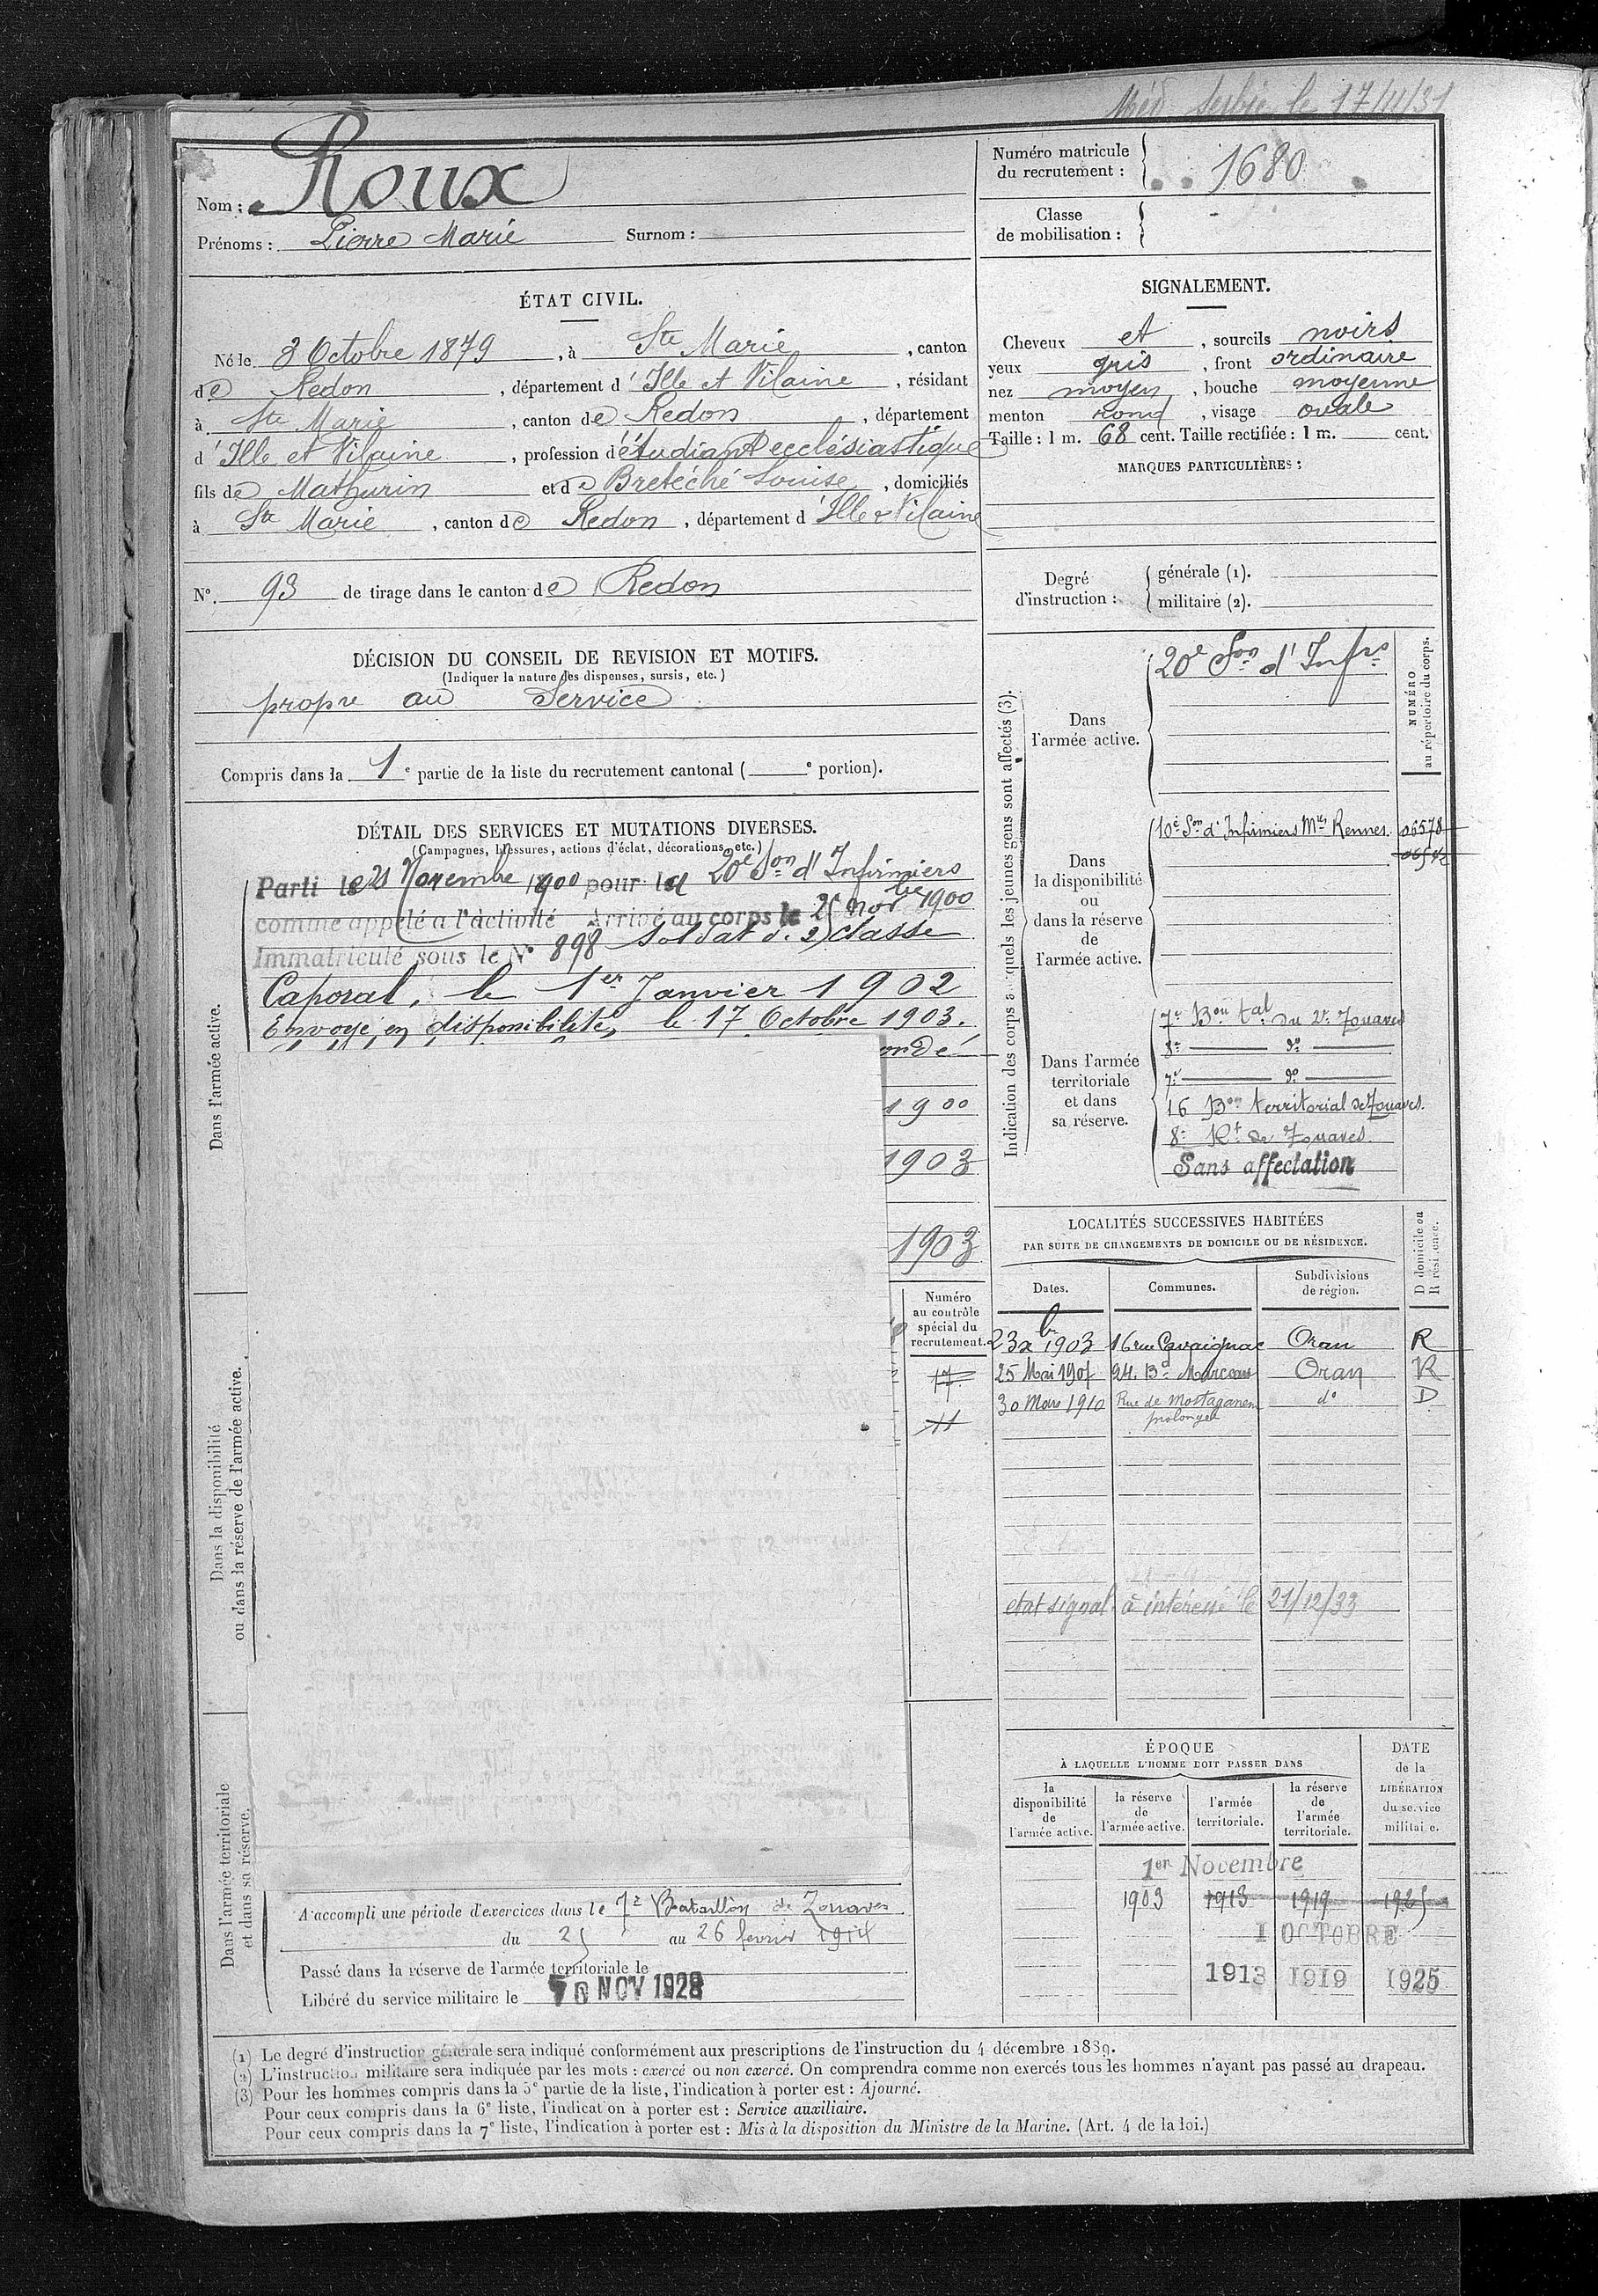 Méd. Serbie le 17/11/31
Nom : Roux
Prénoms : Pierre Marie Surnom :
Numéro matricule
du recrutement : 1680
Classe
de mobilisation : -
ÉTAT CIVIL.
Né le 3 Octobre 1879, à Ste Marie, canton
de Redon, département d'Ille et Vilaine, résidant
à Ste Marie, canton de Redon, département
d'Ille et Vilaine, profession d'étudiant ecclésiastique
fils de Mathurin et de Bretéché Louise, domiciliés
à Ste Marie, canton de Redon, département d'Ille & Vilaine
SIGNALEMENT.
Cheveux et, sourcils noirs
yeux gris, front ordinaire
nez moyen, bouche moyenne
menton rond, visage ovale
Taille : 1 m. 68 cent. Taille rectifiée : 1 m. cent.
MARQUES PARTICULIÈRES :
No. 93 de tirage dans le canton de Redon
Degré
d'instruction :
générale (1).
militaire (2).
DÉCISION DU CONSEIL DE REVISION ET MOTIFS.
(Indiquer la nature des dispenses, sursis, etc.)
propre au Service
Compris dans la 1e partie de la liste du recrutement cantonal ( e portion).
DÉTAIL DES SERVICES ET MUTATIONS DIVERSES.
(Campagnes, blessures, actions d'éclat, décorations, etc.)
Dans l'armée active.
Parti le 21 Novembre 1900 pour la 20e Son d'Infirmiers
comme appelé a l'activité Arrivé au corps le 21 Nov bre 1900
Immatriculé sous le No 898 Soldat de 2e classe
Caporal, le 1er Janvier 1902
Envoyé en disponibilité, le 17 Octobre 1903.
ondé
1900
1903
1903
Numéro
au contrôle
spécial du
recrutement.
17
11
Dans la disponibilité
ou dans la réserve de l'armée active.
Dans l'armée territoriale
et dans sa réserve.
A accompli une période d'exercices dans le 7e Bataillon de Zouaves
du 25 au 26 février 1914
Passé dans la réserve de l'armée territoriale le
Libéré du service militaire le 10 NOV 1928
Indication des corps auxquels les jeunes gens sont affectés (3).
NUMÉRO
au répertoire du corps.
Dans
l'armée active.
20e Son d'Infrs
Dans
la disponibilité
ou
dans la réserve
de
l'armée active.
10e Son d'Infirmiers Mres Rennes. 06578
Dans l'armée
territoriale
et dans
sa réserve.
7e Bon tal du 2e Zouaves
8e do
7e do
16 Bon territorial de Zouaves.
8e Rt de Zouaves.
Sans affectation
LOCALITÉS SUCCESSIVES HABITÉES
PAR SUITE DE CHANGEMENTS DE DOMICILE OU DE RÉSIDENCE.
Dates. Communes. Subdivisions
de région. D domicile ou
R résidence.
23 Xbre 1903 16 rue Cavaignac Oran R
25 Mai 1907 24. Bd Marceau Oran R
30 Mars 1910 Rue de Mostaganem
prolongée do D
etat signal. à intéressé le 21/12/33
ÉPOQUE
À LAQUELLE L'HOMME DOIT PASSER DANS
DATE
de la
LIBÉRATION
du service
militaire.
la
disponibilité
de
l'armée active.
la réserve
de
l'armée active.
l'armée
territoriale.
la réserve
de
l'armée
territoriale.
1er Novembre
1903 1913 1919 1925
1 OCTOBRE
1913 1919 1925
(1) Le degré d'instruction générale sera indiqué conformément aux prescriptions de l'instruction du 4 décembre 1889.
(2) L'instruction militaire sera indiquée par les mots : exercé ou non exercé. On comprendra comme non exercés tous les hommes n'ayant pas passé au drapeau.
(3) Pour les hommes compris dans la 5e partie de la liste, l'indication à porter est : Ajourné.
Pour ceux compris dans la 6e liste, l'indication à porter est : Service auxiliaire.
Pour ceux compris dans la 7e liste, l'indication à porter est : Mis à la disposition du Ministre de la Marine. (Art. 4 de la loi.)